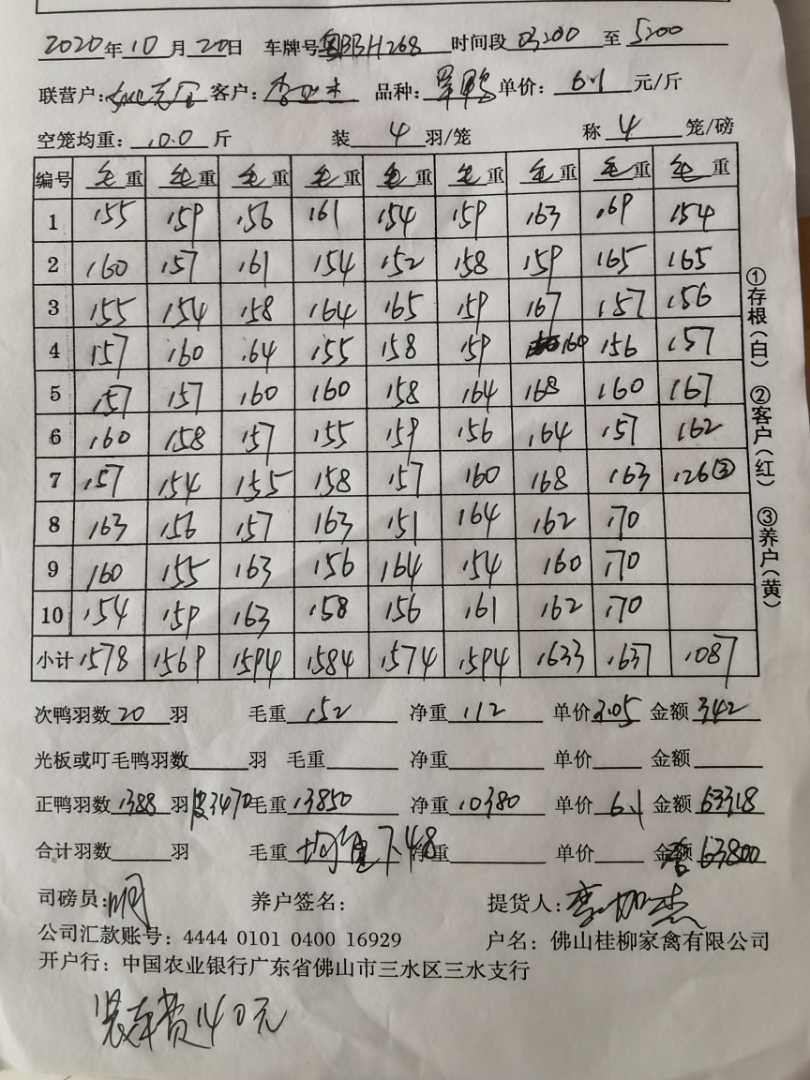 2020年10月20日 车牌号粤BBH268 时间段 03200 至 5200
联营户: 客户: 品种: 单价: 6.1 元/斤
空笼均重: 10.0 斤 装 4 羽/笼 称 4 笼/磅
编号 毛重 毛重 毛重 毛重 毛重 毛重 毛重 毛重 毛重
1 155 159 156 161 154 159 163 169 154
2 160 157 161 154 152 158 159 165 165
3 155 154 158 164 165 159 167 157 156
4 157 160 164 155 158 159 160 156 157
5 157 157 160 160 158 164 168 160 167
6 160 158 157 155 159 156 164 157 162
7 157 154 155 158 157 160 168 163 126③
8 163 156 157 163 151 164 162 170
9 160 155 163 156 164 154 160 170
10 154 159 163 158 156 161 162 170
小计 1578 1569 1594 1584 1574 1594 1633 1637 1087
①存根(白) ②客户(红) ③养户(黄)
次鸭羽数 20 羽 毛重 152 净重 112 单价 3.05 金额 342
光板或叮毛鸭羽数 羽 毛重 净重 单价 金额
正鸭羽数 1388 羽 皮3470 毛重 13850 净重 10380 单价 6.1 金额 63318
合计羽数 羽 毛重 均重7.48 净重 单价 金额 63800
司磅员: 养户签名: 提货人: 李加杰
公司汇款账号: 4444 0101 0400 16929 户名: 佛山桂柳家禽有限公司
开户行: 中国农业银行广东省佛山市三水区三水支行
装车费140元